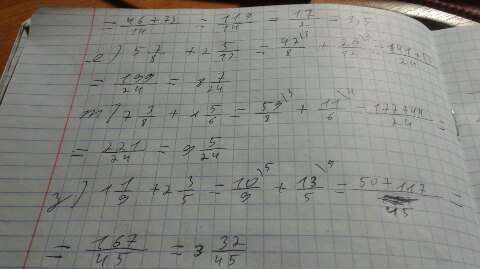 = 46+73/14 = 119/14 = 17/2 = 3,5
е) 5 7/8 + 2 5/12 = 47/8 \3 + 29/12 = 141+58/24
= 199/24 = 8 7/24
7 3/8 + 1 5/6 = 59/8 \3 + 11/6 \4 = 177+44/24 =
= 221/24 = 9 5/24
з) 1 1/9 + 2 3/5 = 10/9 \5 + 13/5 \9 = 50+117/45 =
= 167/45 = 3 32/45